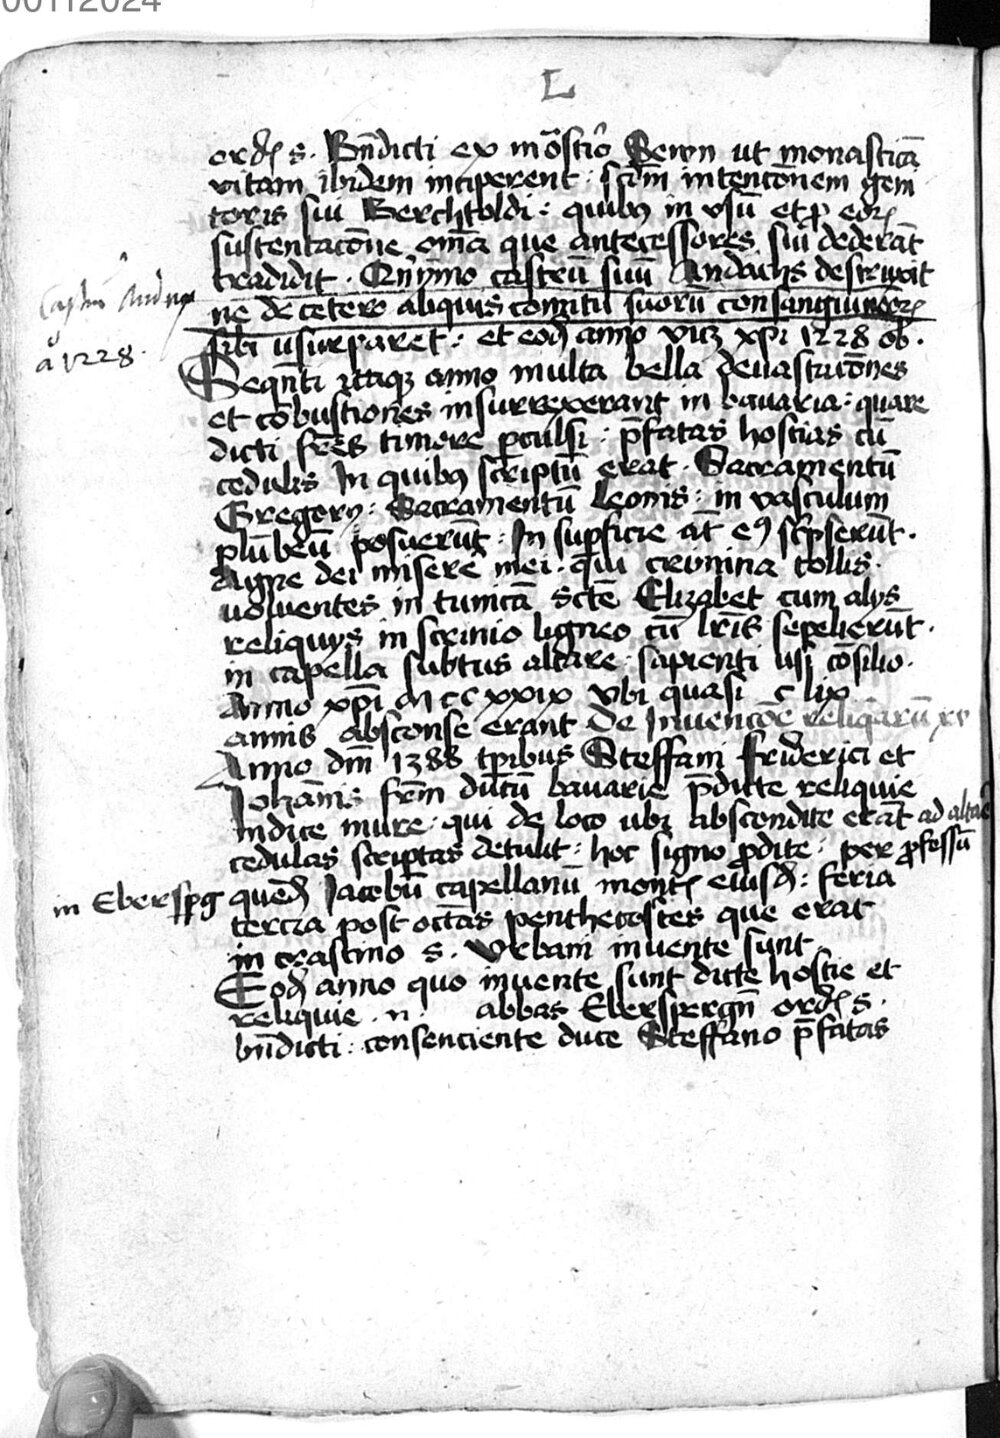 00112024
L
ordīs s. Bn̄dicti ex mōstio Sewn ut monasticā
vitam ibidem inciperent : scdm̄ intencōnem geni
toris sui Berchtoldi : quibꝰ in vsū et p̱ eorꝝ
sustentacōne om̄a que antecessores sui dederāt
tradidit . Qn̄ymmo castrū suū Andächs destruxit
ne de cetero aliquis comitū suorū consanguineorꝝ
sibi usurparet : et eod̄ anno viꝫ xp̄i 1228 ob .
Seqn̄ti itaqꝫ anno multa bella devastucōnes
et cōbustiones insurrexerant in bavaria : quare
dicti fr̄es timore p̱culsi : p̄fatas hostias cū
cedulis In quibꝰ scriptū erat . Sacramentū
Gregorij : Sacramentū Leonis : in vasculum
plūbeū posuerūt : In sup̱ficie at̄ eiꝰ sc̄pserūt .
Agne dei misere mei . qui crimina tollis .
uoluentes in tunicā sctē Elizabet cum alijs
reliquijs in scrinio ligneo cū lr̄is sepelierūt .
in capella subtus altare : sapienti usi cōsilio .
Anno xp̄i M cc xxix vbi quasi c lix
annis absconse erant De Invencōe reliqiarū
Anno dm̄ 1388 tp̱ribus Steffani Friderici et
Johānis fr̄m ducū bavarie p̄dicte reliquie
Indice mure . qui de loco ubi abscondite erāt ad altare
cedulas scriptas detulit : hoc signo p̱dite : per p̱fessū
in Ebersp̱g quend̄ Jacobū capellanū montꝭ eiusd̄ : feria
tercia post octās penthecostes que erat
in crastino s. Vrbani invente sunt
Eod̄ anno quo invente sunt dicte hostie et
reliquie . n . abbas Eberspergn̄ ordīs s .
bn̄dicti : consenciente duce Steffano p̄fatas
a 1228 .